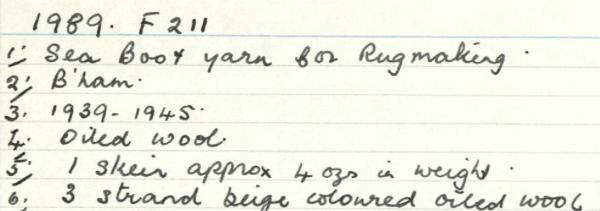 1989. F 211
1. Sea Boot yarn for Rugmaking.
2. B'ham.
3. 1939-1945.
4. Oiled wool.
5. 1 skein approx 4 ozs in weight.
6. 3 strand beige coloured oiled wool